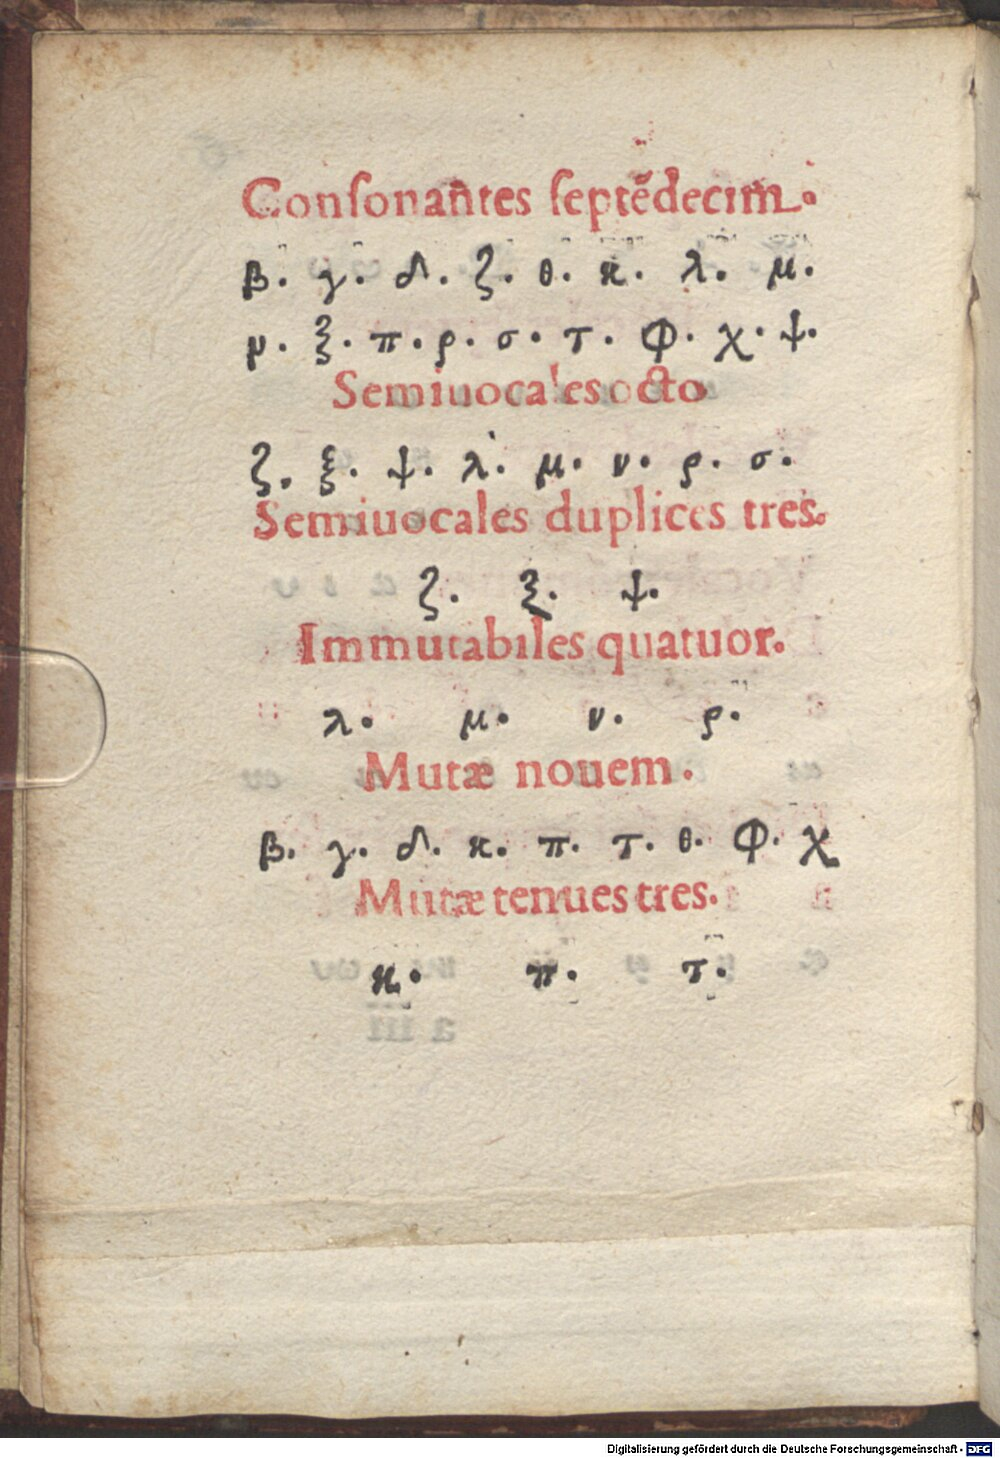 Conſonantes ſeptēdecim.
β. γ. δ. ζ. θ. κ. λ. μ.
ν. ξ. π. ρ. σ. τ. φ. χ. ψ.
Semiuocales octo
ζ. ξ. ψ. λ. μ. ν. ρ. σ.
Semiuocales duplices tres.
ζ. ξ. ψ.
Immutabiles quatuor.
λ. μ. ν. ρ.
Mutæ nouem.
β. γ. δ. κ. π. τ. θ. φ. χ
Mutæ tenues tres.
κ. π. τ.
Digitalisierung gefördert durch die Deutsche Forschungsgemeinschaft - DFG